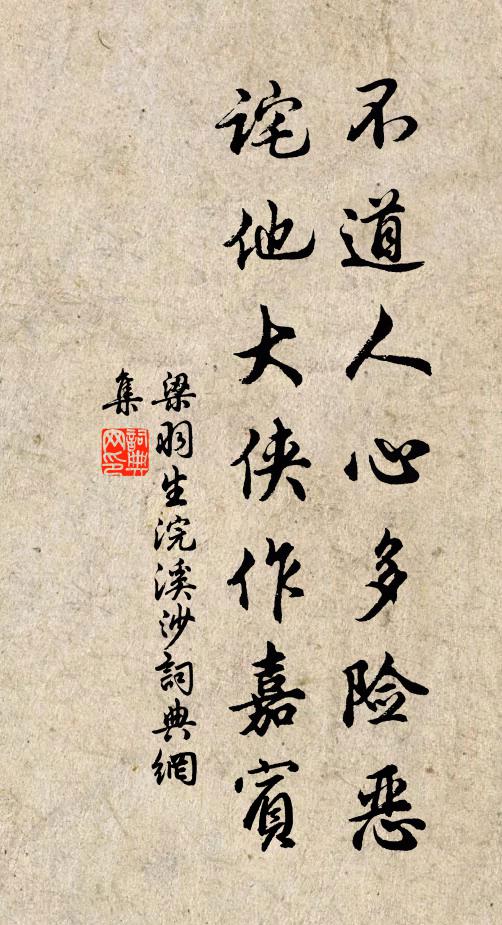 不道人心多险恶
诧他大侠作嘉賓
梁羽生浣溪沙詞典網
集
詞典网印